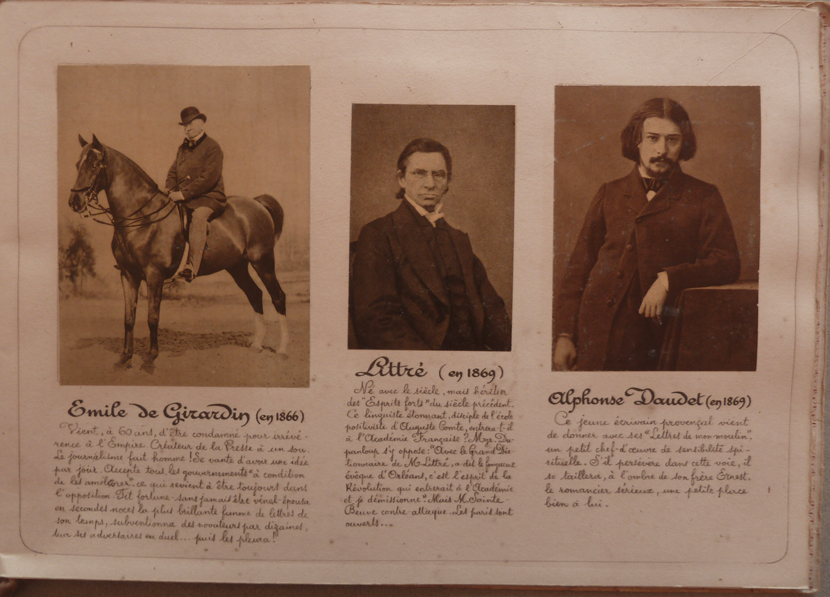 Emile de Girardin (en 1866)
Vient, à 60 ans, d'être condamné pour irrévé-
rence à l'Empire. Créateur de la Presse à un sou.
Le journalisme fait homme! Se vante d'avoir une idée
par jour. Accepte tous les gouvernements "à condition
de les améliorer"... ce qui revient à être toujours dans
l'opposition. Fit fortune sans jamais être vénal. Epousa
en secondes noces la plus brillante femme de lettres de
son temps, subventionna des novateurs par dizaines,
tua ses adversaires en duel... puis les pleura!
Littré (en 1869)
Né avec le siècle, mais héritier
des "Esprits forts" du siècle précédent.
Ce linguiste étonnant, disciple de l'école
positiviste d'Auguste Comte, entrera-t-il
à l'Académie Française? Mgr Du-
panloup s'y oppose: "Avec le Grand Dic-
tionnaire de Mr Littré, a dit le fougueux
évêque d'Orléans, c'est l'esprit de la
Révolution qui entrerait à l'Académie
et je démissionne". Mais M. Sainte-
Beuve contre-attaque. Les paris sont
ouverts...
Alphonse Daudet (en 1869)
Ce jeune écrivain provençal vient
de donner avec ses "Lettres de mon moulin",
un petit chef-d'œuvre de sensibilité spi-
rituelle. S'il persévère dans cette voie, il
se taillera, à l'ombre de son frère Ernest,
le romancier sérieux, une petite place
bien à lui.